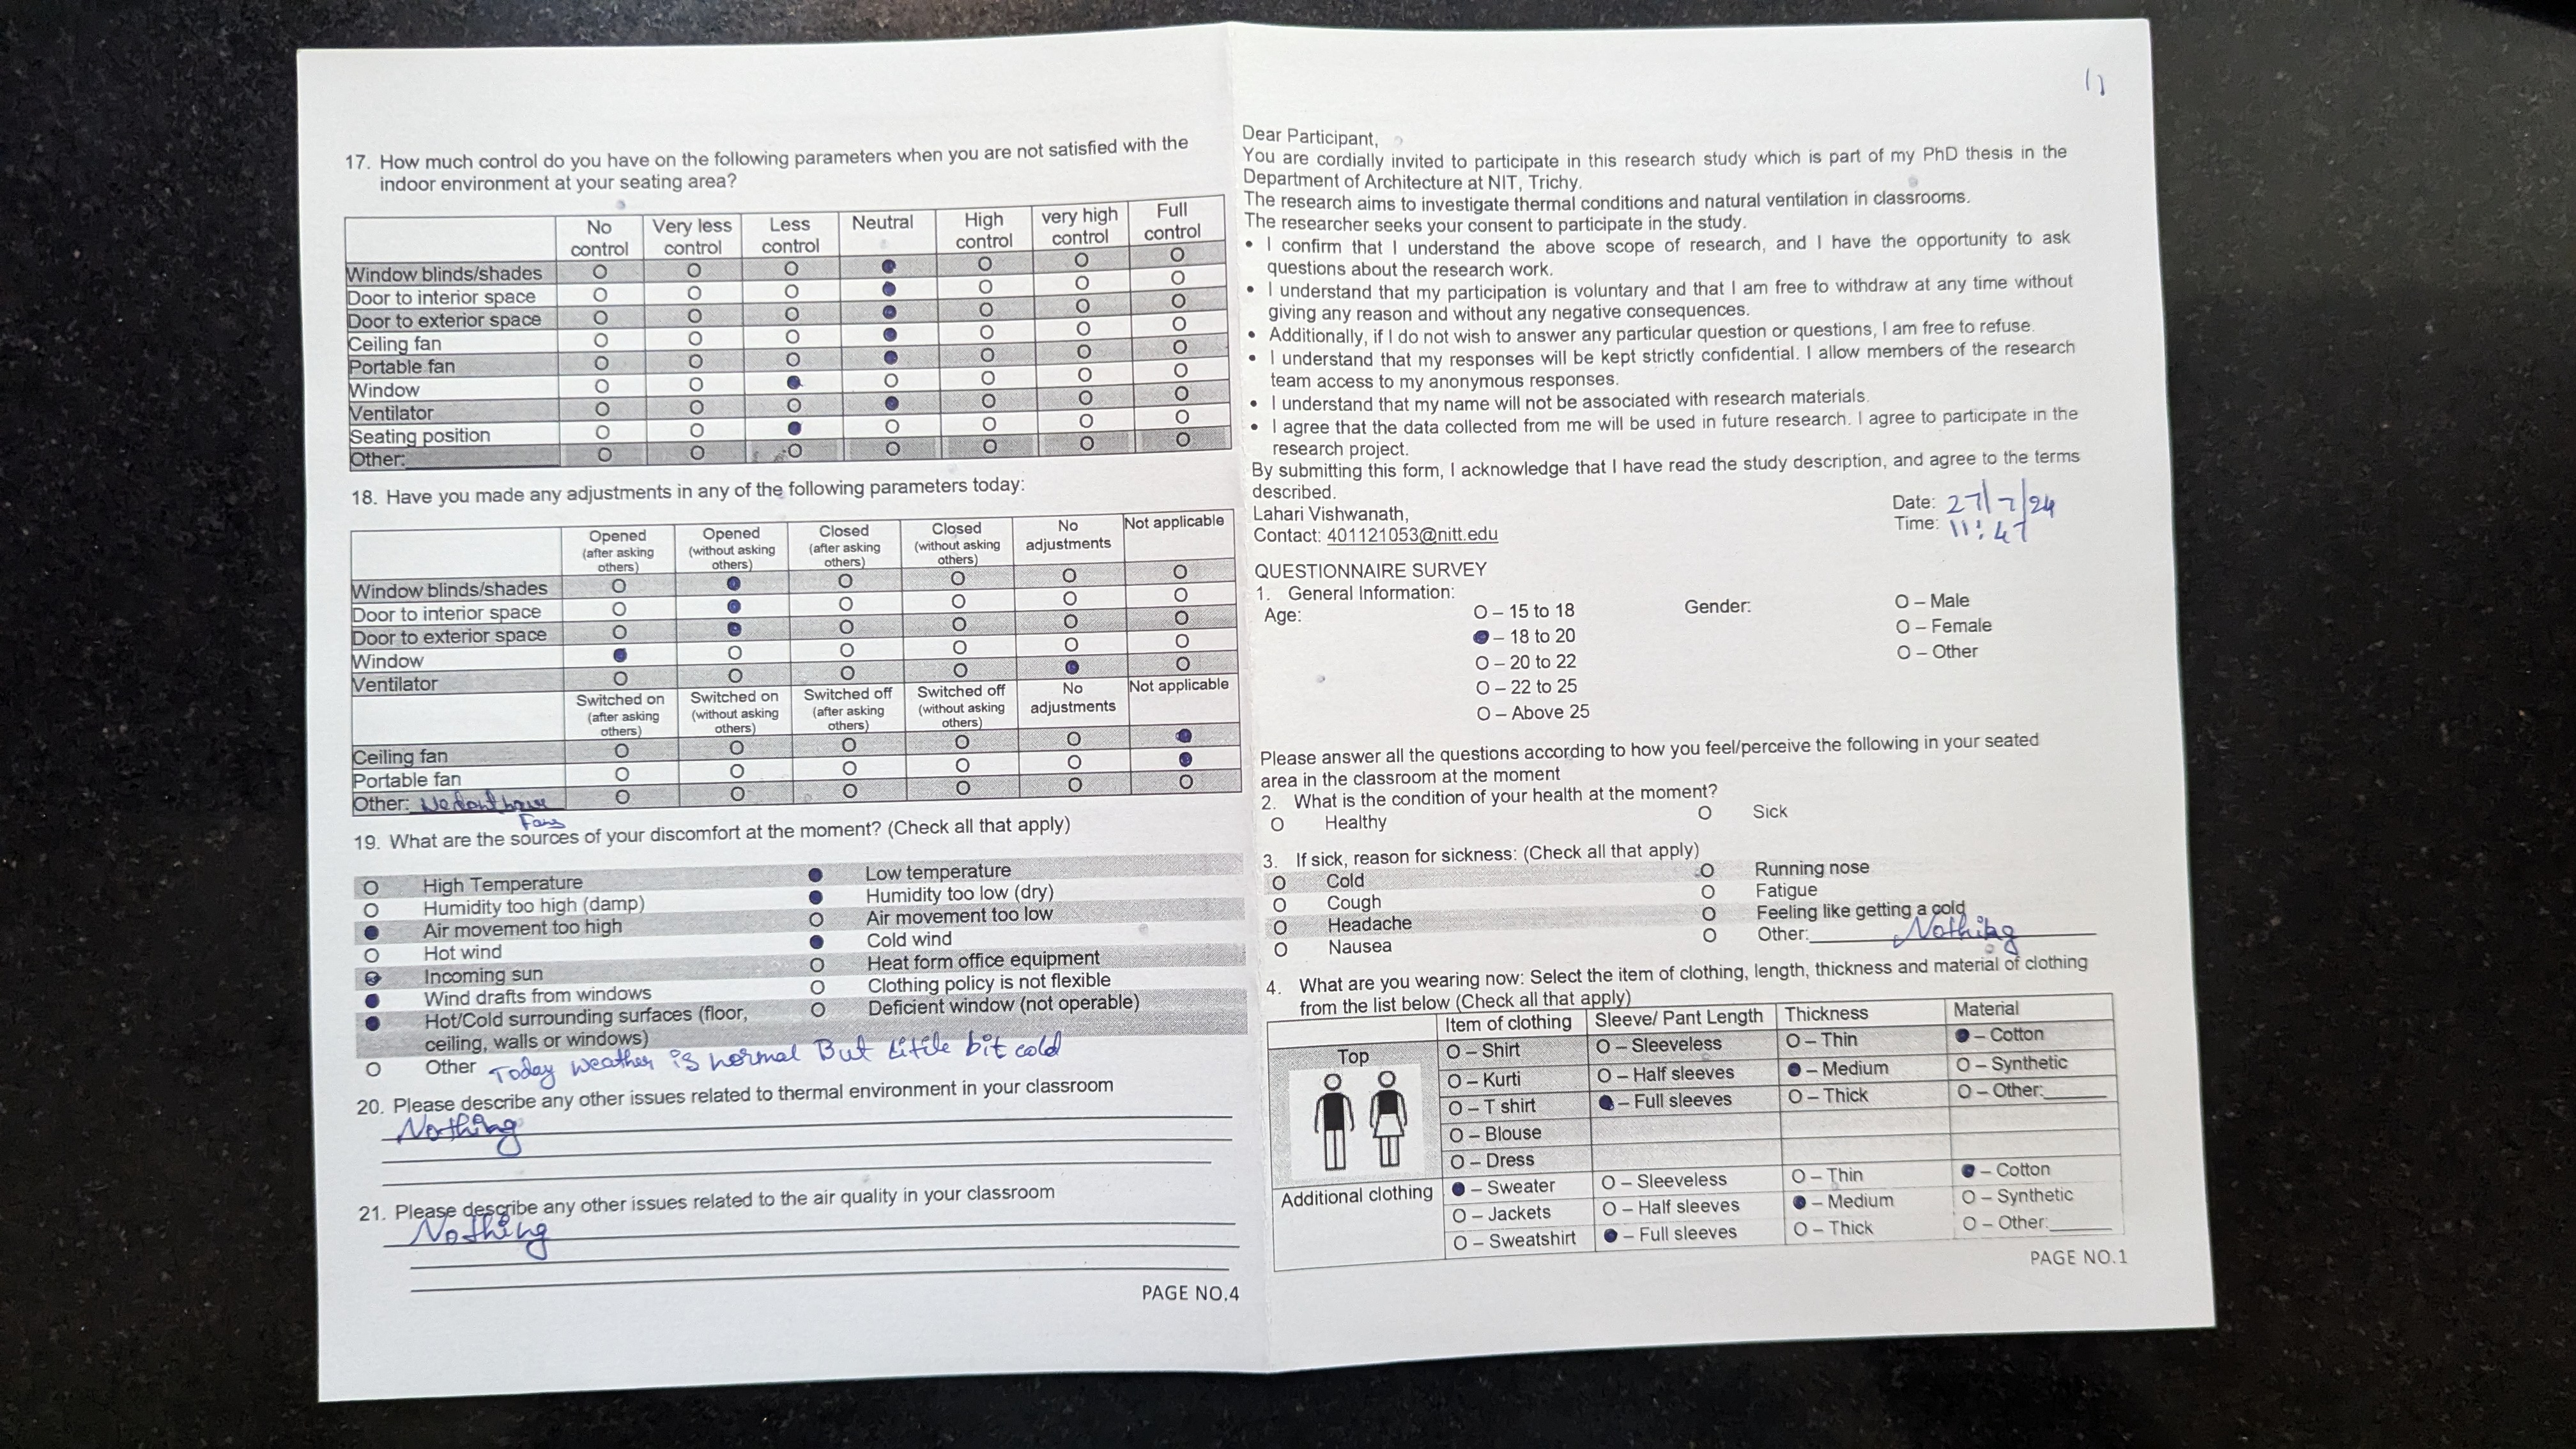 17. How much control do you have on the following parameters when you are not satisfied with the
indoor environment at your seating area?
No control Very less control Less control Neutral High control very high control Full control
Window blinds/shades O O O ● O O O
Door to interior space O O O ● O O O
Door to exterior space O O O ● O O O
Ceiling fan O O O ● O O O
Portable fan O O O ● O O O
Window O O ● O O O O
Ventilator O O O ● O O O
Seating position O O ● O O O O
Other: O O O O O O O
18. Have you made any adjustments in any of the following parameters today:
Opened (after asking others) Opened (without asking others) Closed (after asking others) Closed (without asking others) No adjustments Not applicable
Window blinds/shades O ● O O O O
Door to interior space O ● O O O O
Door to exterior space O ● O O O O
Window ● O O O O O
Ventilator O O O O ● O
Switched on (after asking others) Switched on (without asking others) Switched off (after asking others) Switched off (without asking others) No adjustments Not applicable
Ceiling fan O O O O O ●
Portable fan O O O O O ●
Other: We dont have O O O O O O
Fans
19. What are the sources of your discomfort at the moment? (Check all that apply)
O High Temperature ● Low temperature
O Humidity too high (damp) ● Humidity too low (dry)
● Air movement too high O Air movement too low
O Hot wind ● Cold wind
O Incoming sun O Heat form office equipment
● Wind drafts from windows O Clothing policy is not flexible
● Hot/Cold surrounding surfaces (floor, O Deficient window (not operable)
ceiling, walls or windows)
O Other Today weather is normal But little bit cold
20. Please describe any other issues related to thermal environment in your classroom
Nothing
21. Please describe any other issues related to the air quality in your classroom
Nothing
PAGE NO.4
11
Dear Participant,
You are cordially invited to participate in this research study which is part of my PhD thesis in the
Department of Architecture at NIT, Trichy.
The research aims to investigate thermal conditions and natural ventilation in classrooms.
The researcher seeks your consent to participate in the study.
• I confirm that I understand the above scope of research, and I have the opportunity to ask
questions about the research work.
• I understand that my participation is voluntary and that I am free to withdraw at any time without
giving any reason and without any negative consequences.
• Additionally, if I do not wish to answer any particular question or questions, I am free to refuse.
• I understand that my responses will be kept strictly confidential. I allow members of the research
team access to my anonymous responses.
• I understand that my name will not be associated with research materials.
• I agree that the data collected from me will be used in future research. I agree to participate in the
research project.
By submitting this form, I acknowledge that I have read the study description, and agree to the terms
described.
Date: 27/7/24
Lahari Vishwanath,
Time: 11:47
Contact: 401121053@nitt.edu
QUESTIONNAIRE SURVEY
1. General Information:
Age: O – 15 to 18 Gender: O – Male
● – 18 to 20 O – Female
O – 20 to 22 O – Other
O – 22 to 25
O – Above 25
Please answer all the questions according to how you feel/perceive the following in your seated
area in the classroom at the moment
2. What is the condition of your health at the moment?
O Healthy O Sick
3. If sick, reason for sickness: (Check all that apply)
O Cold O Running nose
O Cough O Fatigue
O Headache O Feeling like getting a cold
O Nausea O Other: Nothing
4. What are you wearing now: Select the item of clothing, length, thickness and material of clothing
from the list below (Check all that apply)
Item of clothing Sleeve/ Pant Length Thickness Material
Top O – Shirt O – Sleeveless O – Thin ● – Cotton
O – Kurti O – Half sleeves ● – Medium O – Synthetic
O – T shirt ● – Full sleeves O – Thick O – Other:
O – Blouse
O – Dress
Additional clothing ● – Sweater O – Sleeveless O – Thin ● – Cotton
O – Jackets O – Half sleeves ● – Medium O – Synthetic
O – Sweatshirt ● – Full sleeves O – Thick O – Other:
PAGE NO.1